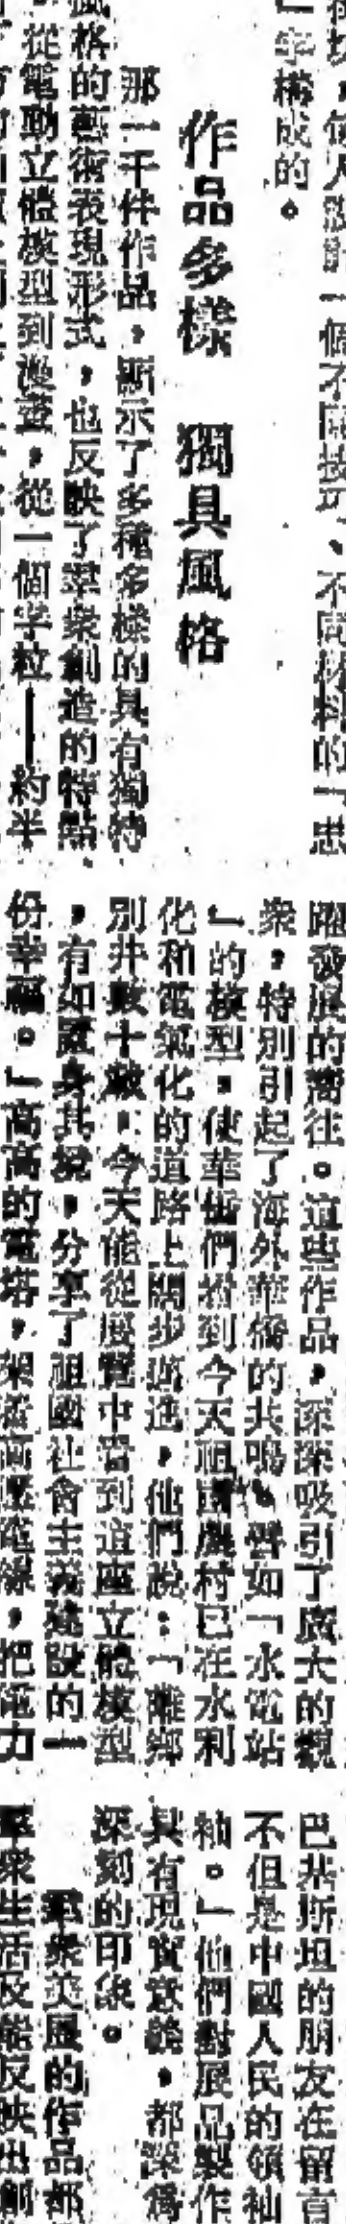 」字構成的。
作品多樣　獨具風格
那一千件作品，顯示了多種多樣的具有獨特
風格的藝術表現形式，也反映了羣衆創造的特點
，從電動立體模型到漫畫，從一個字粒——約半
躍發展的嚮往。這些作品，深深吸引了廣大的觀
衆，特別引起了海外華僑的共鳴。譬如「水電站
」的模型，使華僑們看到今天祖國農村已在水利
化和電氣化的道路上闊步邁進，他們說：「離鄉
別井數十載，今天能從展覽中看到這座立體模型
，有如置身其境，分享了祖國社會主義建設的一
份幸福。」高高的電塔，架着高壓電線，把電力
巴基斯坦的朋友在留言
不但是中國人民的領袖
袖。」他們對展品製作
具有現實意義，都深爲
深刻的印象。
羣衆美展的作品都
羣衆生活及能反映出創